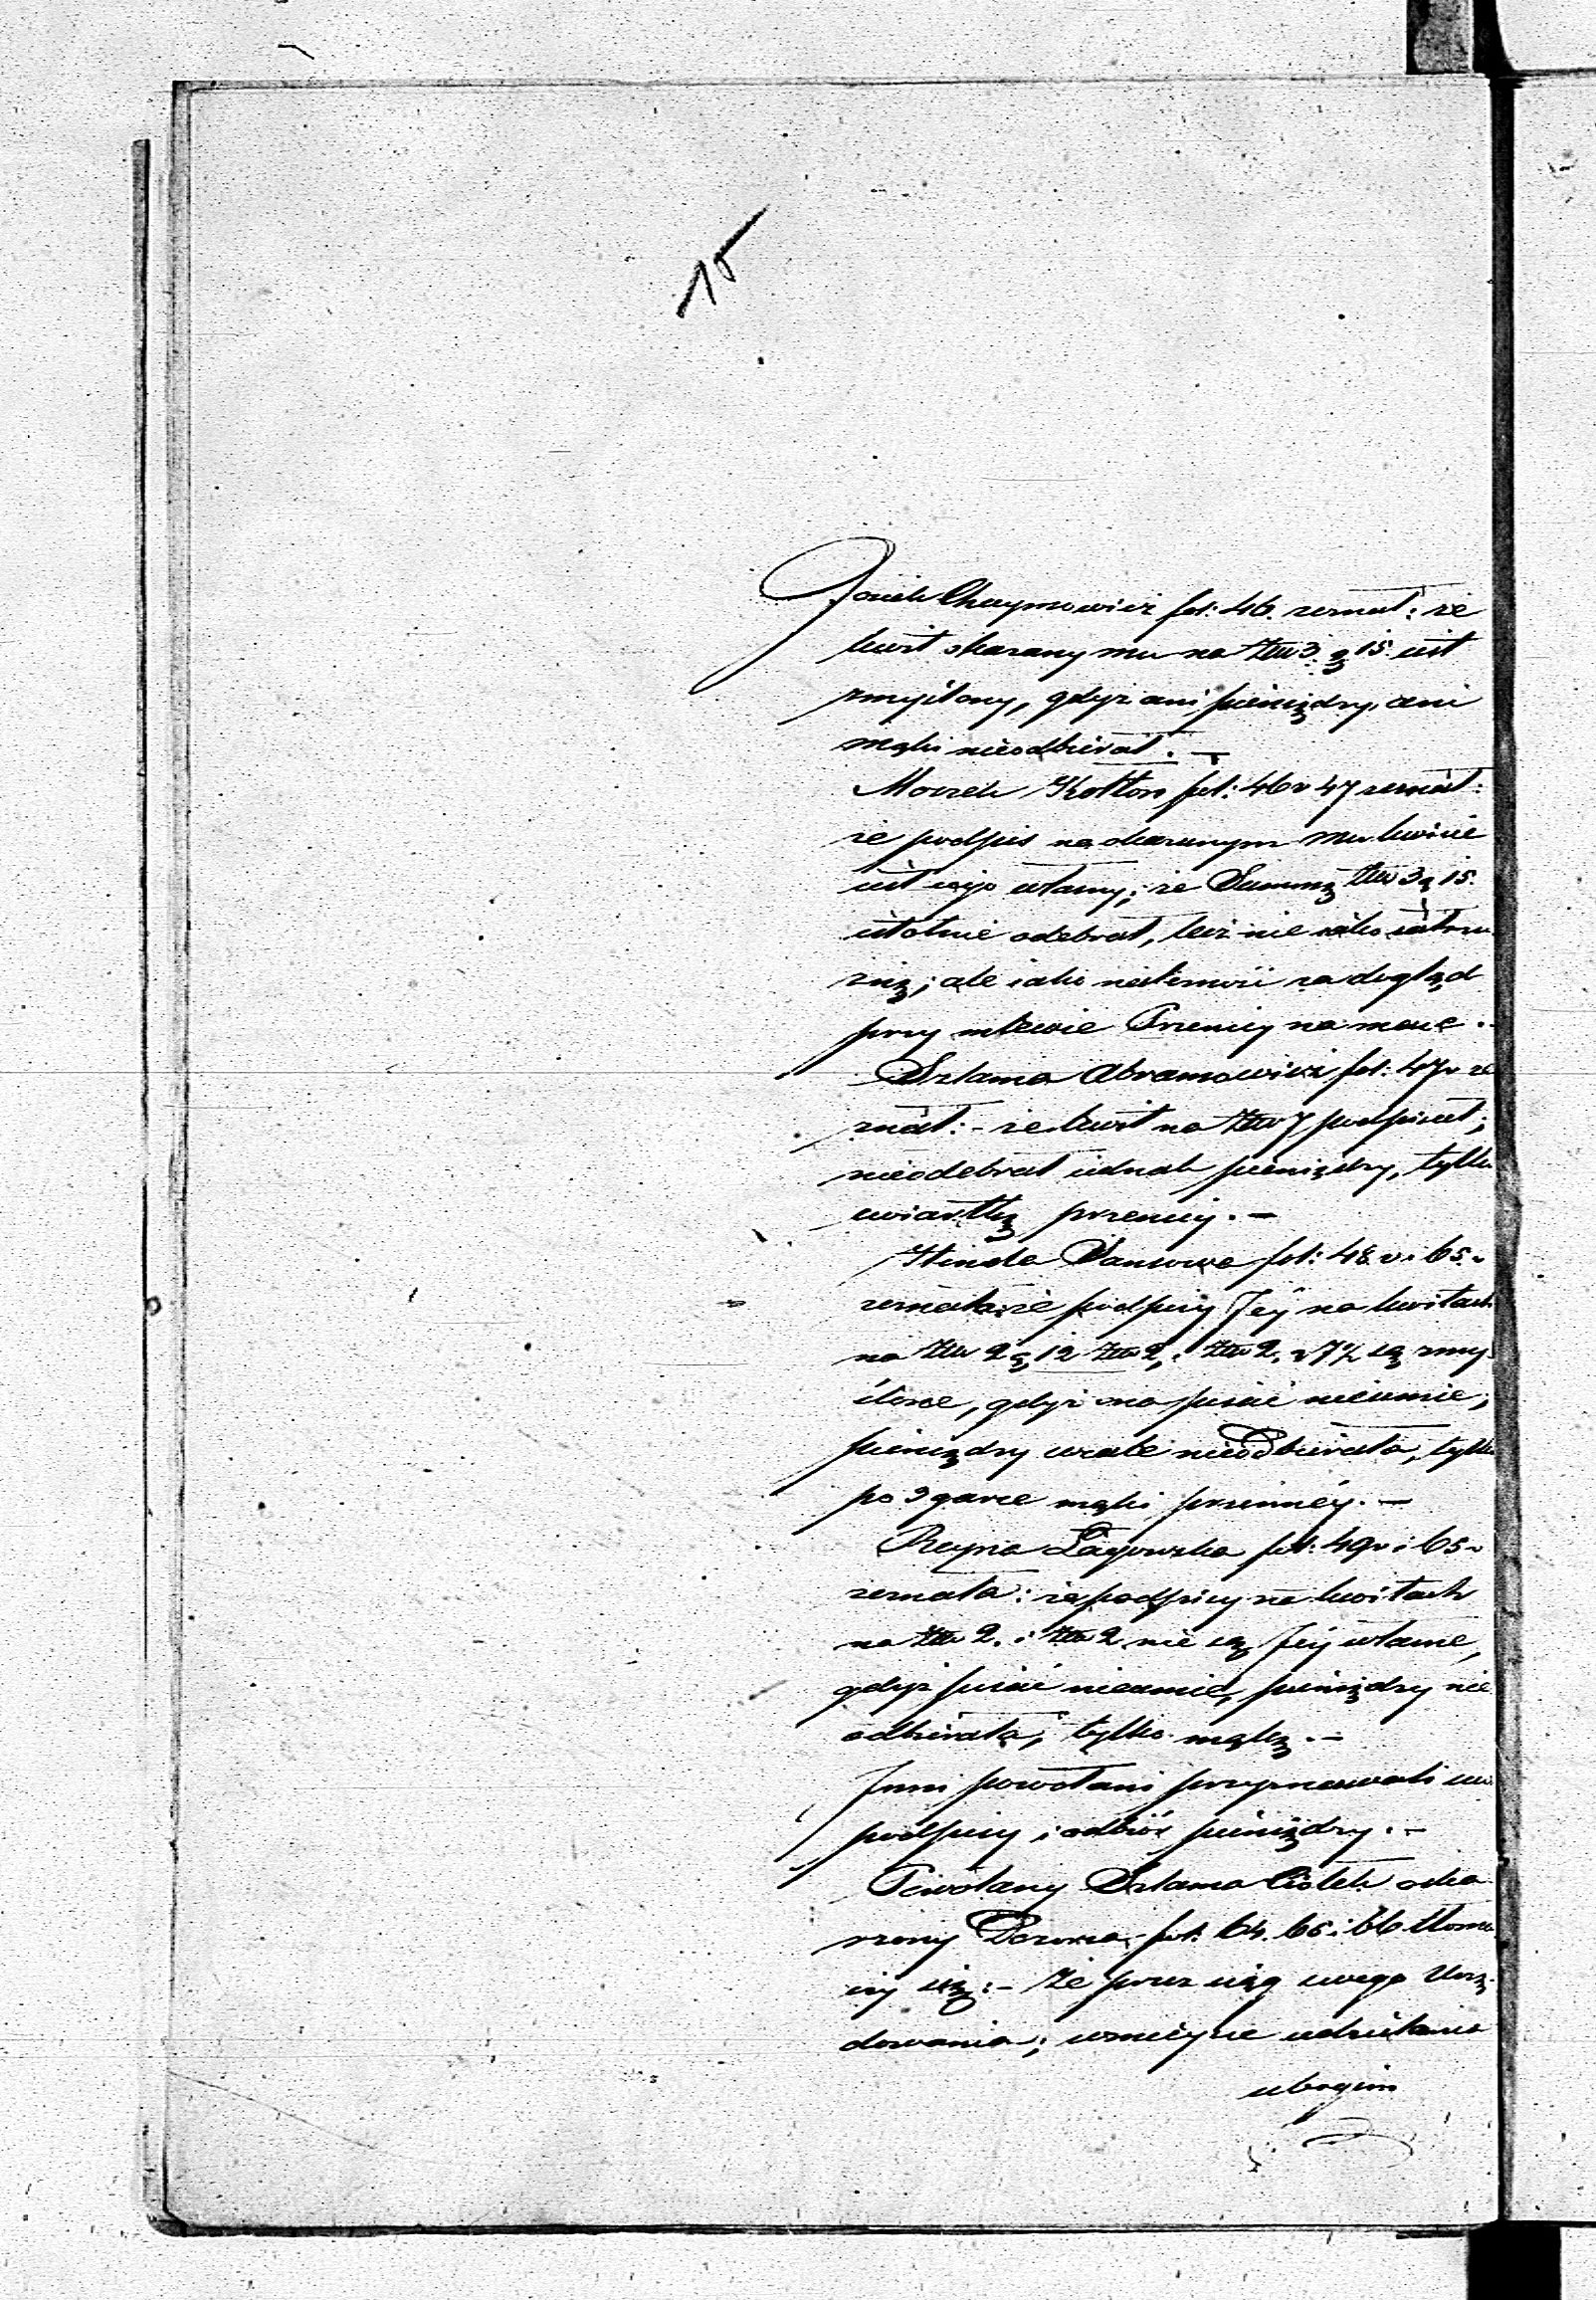 15
Josiek Chaymowicz fol: 46. zeznał: że
kwit okazany mu na złł 3 g 15. iest
zmyślony, gdyż ani pieniędzy, ani
mąki nieodbierał. —
Moszek Kotton fol: 46v 47 zeznał:
że podpis na okazanym mu kwicie
iest iego własny; że Summę złł 3 g 15.
istotnie odebrał, lecz nie iako iałmu
żnę; ale iako należność za dogląd
przy mlewie Pszenicy na mace.
Szlama Abramowicz fol: 47v ze
znał: - że kwit na złł 7 podpisał;
nieodebrał iednak pieniędzy, tylko
cwiartkę pszenicy. —
Hinda fol: 48 v. i 65. v
zeznała: że podpisy Jéy na kwitach
na złł 2 g 12 złł 2, i złł 2. g 7½ są zmy
ślone, gdyż ona pisać nieumie,
pieniędzy wcale nieodbierała, tylko
po 3 garce mąki pszennéy. —
Rayna Łagowska fol: 49v i 65 v
zeznała: że podpisy na kwitach
na złł 2. i złł 2 nie są Jéy własne,
gdyż pisać nieumié, pieniędzy nie
odbierała, tylko mąkę. —
Inni powołani przyznawali swe
podpisy i odbiór pieniędzy. —
Powołany Szlama Ciołek oska
rżony Dozorca fol: 64. 65 i 66 tłoma
czy się: - Że przez ciąg swego Urzę
dowania; wzmieysce udzielania
ubogim